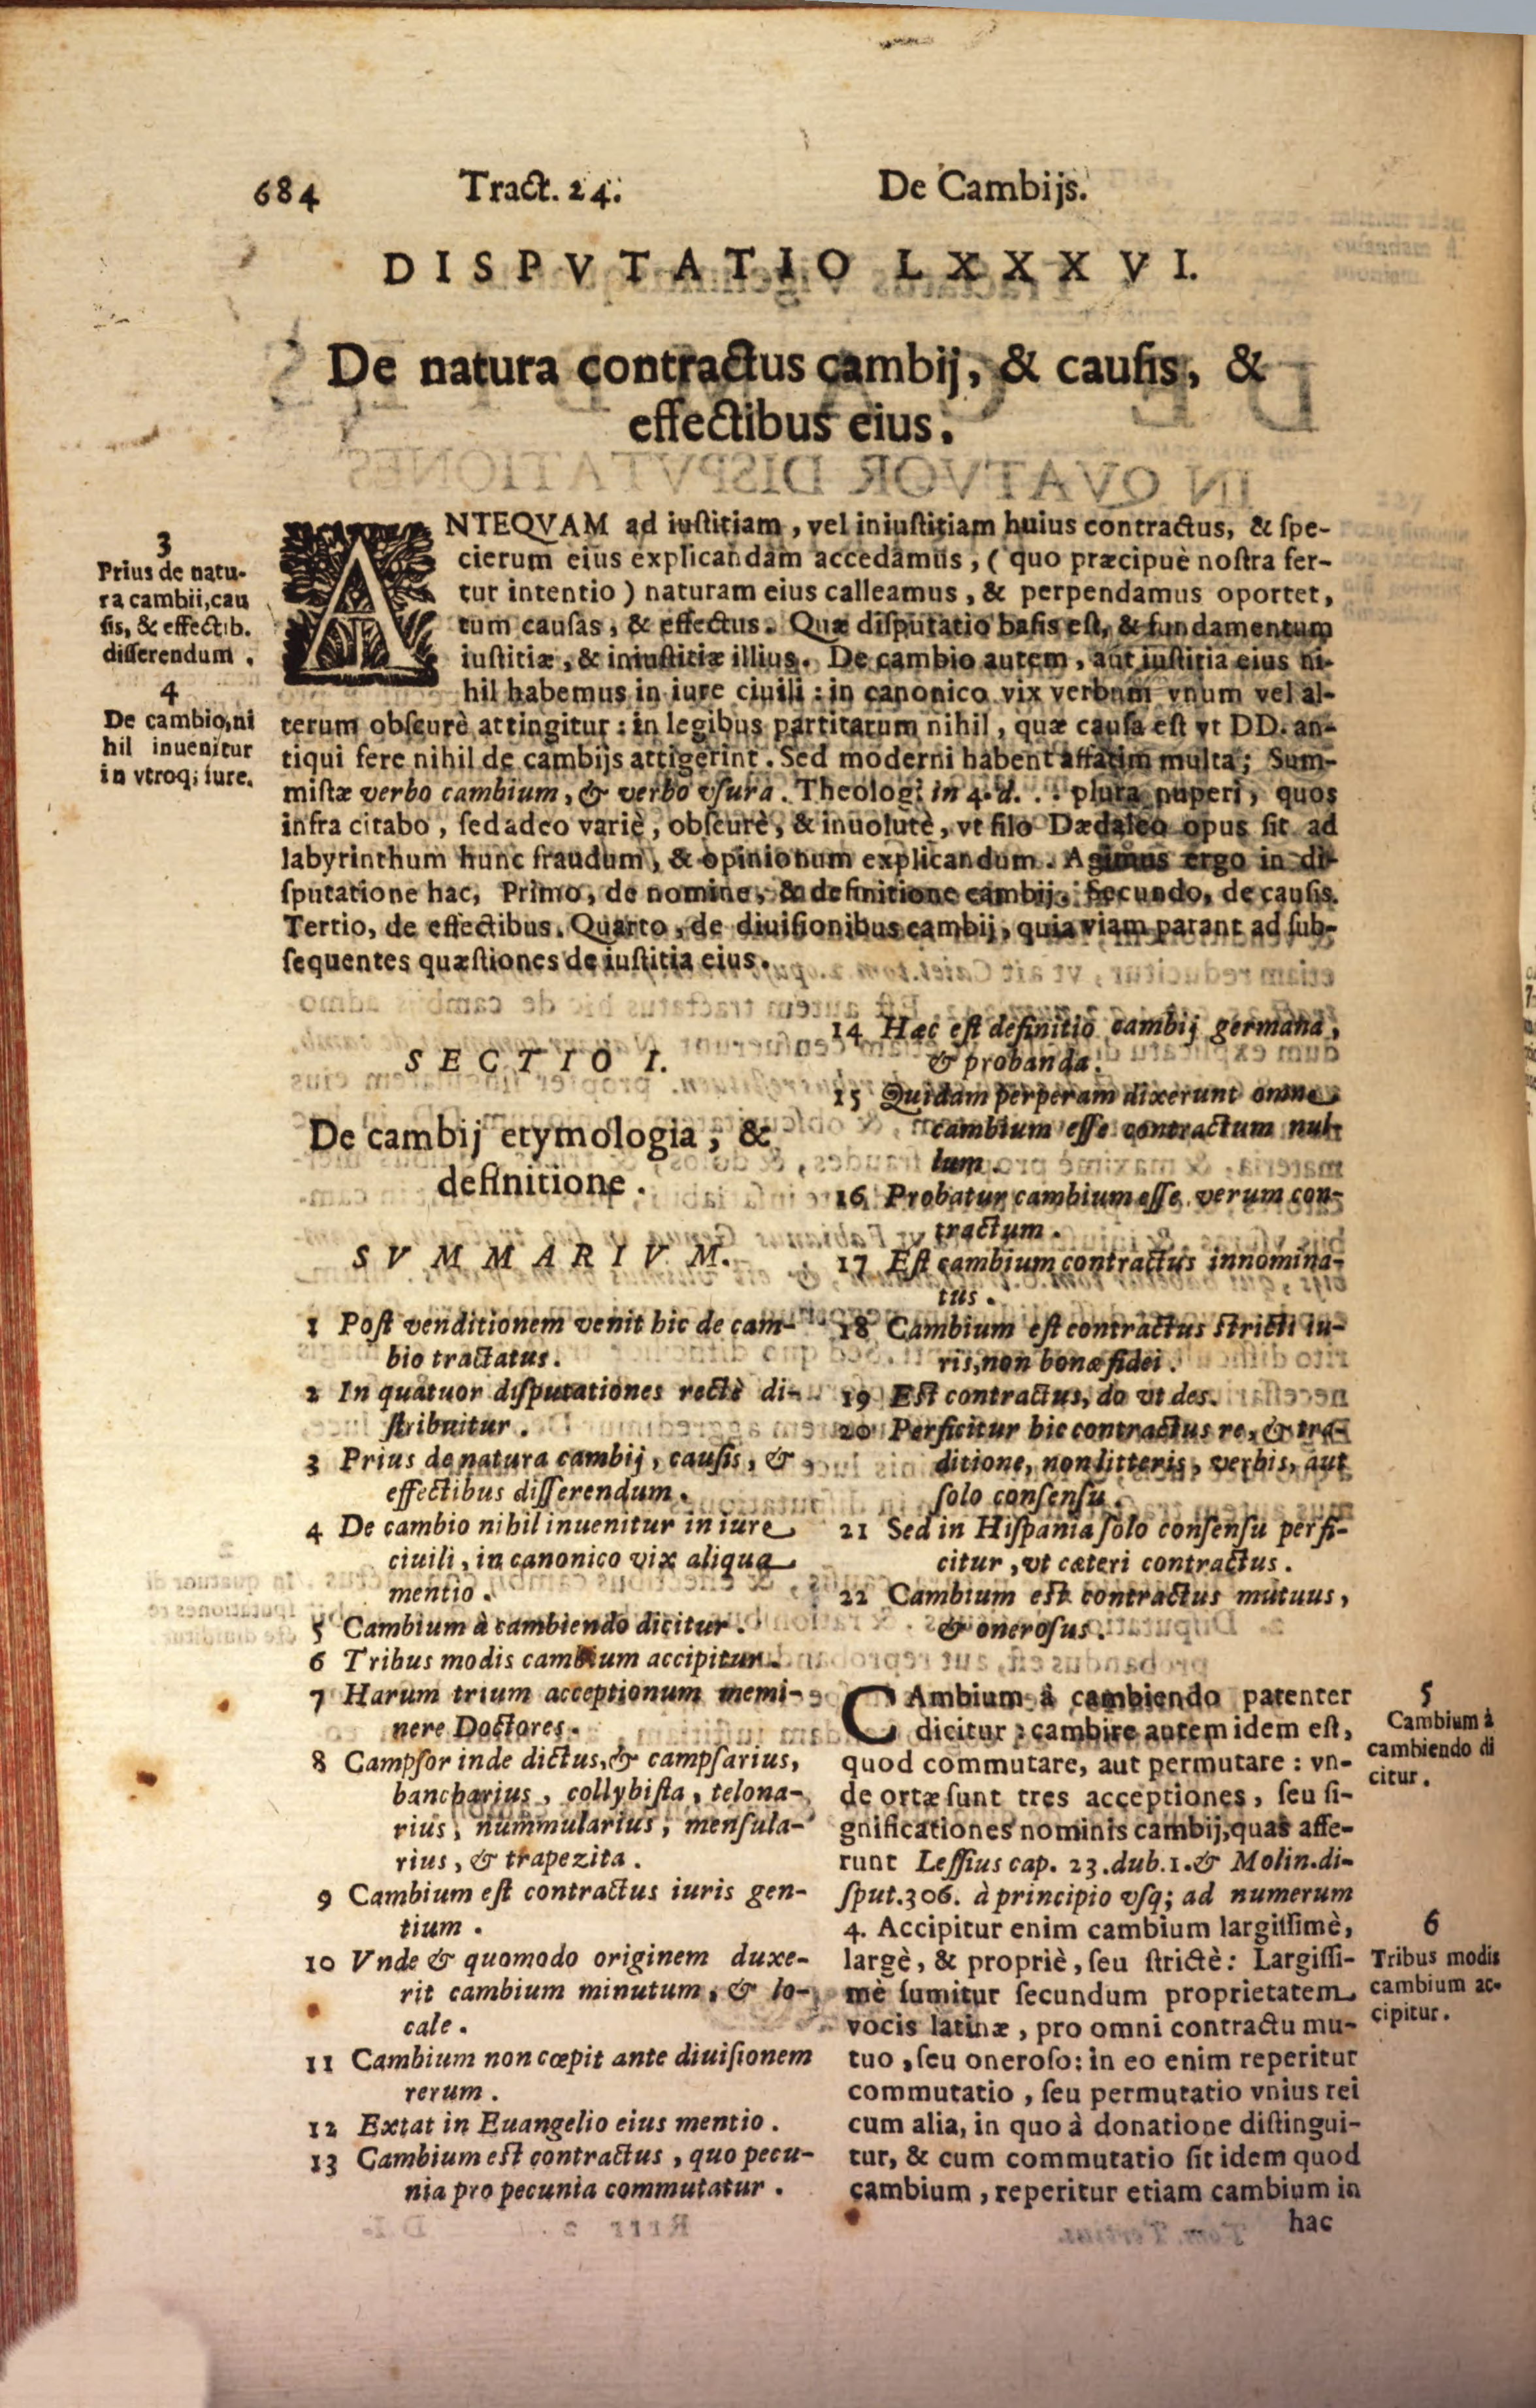 684 Tract. 24. De Cambijs.
DISPVTATIO LXXXVI.
De natura contractus cambij, & cauſis, &
effectibus eius.
3
Prius de natu-
ra cambii, cau
ſis, & effectib.
diſſerendum.
4
De cambio, ni
hil inuenitur
in vtroq; iure.
ANTEQVAM ad iuſtitiam, vel iniuſtitiam huius contractus, & ſpe-
cierum eius explicandam accedamus, (quo præcipuè noſtra fer-
tur intentio) naturam eius calleamus, & perpendamus oportet,
tum cauſas, & effectus. Quæ diſputatio baſis eſt, & fundamentum
iuſtitiæ, & iniuſtitiæ illius. De cambio autem, aut iuſtitia eius ni-
hil habemus in iure ciuili: in canonico vix verbum vnum vel al-
terum obſcurè attingitur: in legibus partitarum nihil, quæ cauſa eſt vt DD. an-
tiqui fere nihil de cambijs attigerint. Sed moderni habent affatim multa; Sum-
miſtæ verbo cambium, & verbo vſura. Theologi in 4. d. . . plura nuperi, quos
infra citabo, ſed adeo variè, obſcurè, & inuolutè, vt filo Dædaleo opus ſit ad
labyrinthum hunc fraudum, & opinionum explicandum. Agimus ergo in di-
ſputatione hac, Primo, de nomine, & definitione cambij. Secundo, de cauſis.
Tertio, de effectibus. Quarto, de diuiſionibus cambij, quia viam parant ad ſub-
ſequentes quæſtiones de iuſtitia eius.
SECTIO I.
De cambij etymologia, &
definitione.
SVMMARIVM.
1 Poſt venditionem venit hic de cam-
bio tractatus.
2 In quatuor diſputationes rectè di-
ſtribuitur.
3 Prius de natura cambij, cauſis, &
effectibus diſſerendum.
4 De cambio nihil inuenitur in iure
ciuili, in canonico vix aliqua
mentio.
5 Cambium à cambiendo dicitur.
6 Tribus modis cambium accipitur.
7 Harum trium acceptionum memi-
nere Doctores.
8 Campſor inde dictus, & campſarius,
bancharius, collybiſta, telona-
rius, nummularius, menſula-
rius, & trapezita.
9 Cambium eſt contractus iuris gen-
tium.
10 Vnde & quomodo originem duxe-
rit cambium minutum, & lo-
cale.
11 Cambium non cœpit ante diuiſionem
rerum.
12 Extat in Euangelio eius mentio.
13 Cambium eſt contractus, quo pecu-
nia pro pecunia commutatur.
14 Hæc eſt definitio cambij germana,
& probanda.
15 Quidam perperam dixerunt omne
cambium eſſe contractum nul-
lum.
16 Probatur cambium eſſe verum con-
tractum.
17 Eſt cambium contractus innomina-
tus.
18 Cambium eſt contractus ſtricti iu-
ris, non bonæ fidei.
19 Eſt contractus, do vt des.
20 Perficitur hic contractus re, & tra-
ditione, non litteris, verbis, aut
ſolo conſenſu.
21 Sed in Hiſpania ſolo conſenſu perfi-
citur, vt cæteri contractus.
22 Cambium eſt contractus mutuus,
& oneroſus.
CAmbium à cambiendo patenter
dicitur: cambire autem idem eſt,
quod commutare, aut permutare: vn-
de ortæ ſunt tres acceptiones, ſeu ſi-
gnificationes nominis cambij, quas affe-
runt Leſſius cap. 23. dub. 1. & Molin. di-
ſput. 306. à principio vſq; ad numerum
4. Accipitur enim cambium largiſſimè,
largè, & propriè, ſeu ſtrictè: Largiſſi-
mè ſumitur ſecundum proprietatem
vocis latinæ, pro omni contractu mu-
tuo, ſeu oneroſo: in eo enim reperitur
commutatio, ſeu permutatio vnius rei
cum alia, in quo à donatione diſtingui-
tur, & cum commutatio ſit idem quod
cambium, reperitur etiam cambium in
hac
5
Cambium à
cambiendo di
citur.
6
Tribus modis
cambium ac-
cipitur.